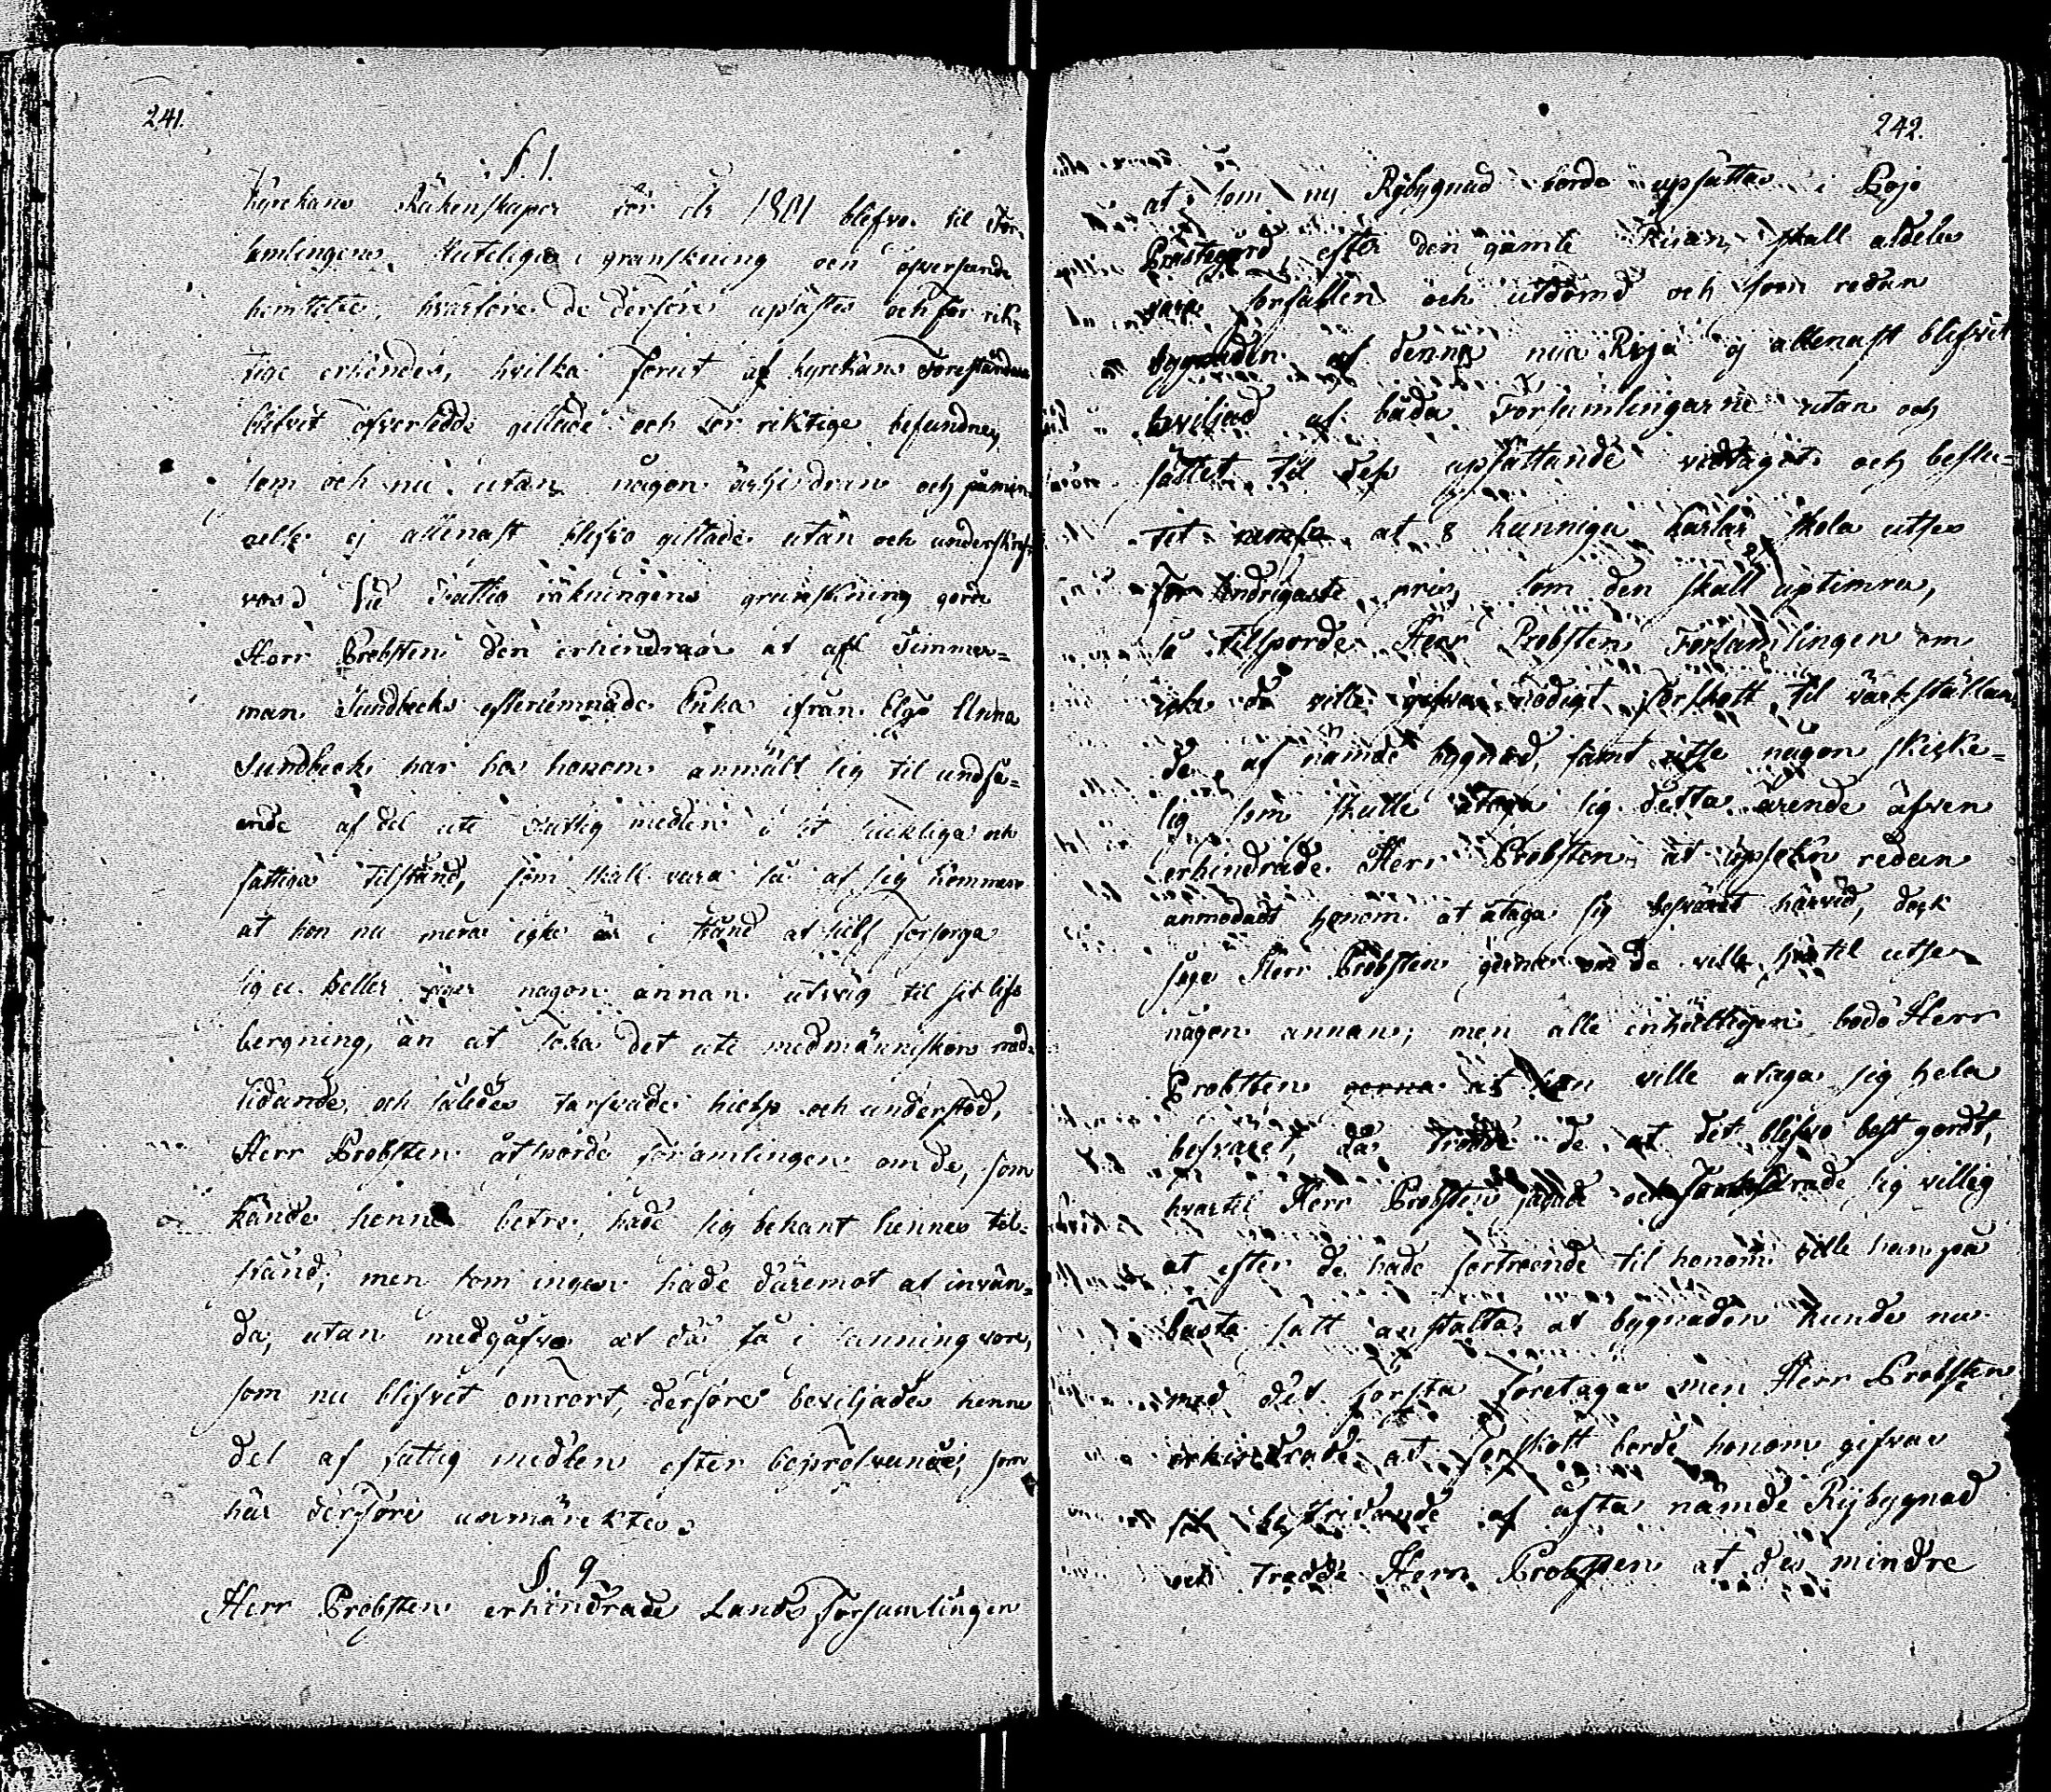 241.
§. 1.
Kyrckans Räkenskaper för år 1801 blefvo til För-
samlingens slutelige granskning och öfverseende
hemstelte, hvarföre de derföre uplästes och för rik-
tige erkändes, hvilka förut af kyrckans Föreståndare
blifvit öfversedde gillade och för riktige befundne,
som och nu utan någon erhindran och påmin-
nelse ej allenast blefvo gillade utan och underskref-
vos. Vid Fattig räkningens granskning gorde
Herr Probsten den erhindran at afl. Timmer-
man Sundbecks efterlemnade Enka ifrån Elgö Anna
Sundbeck har hos honom anmält sig til undfå-
ende af del uti Fattig medlen i sit siukliga och
fattiga tilstånd, som skall vara så at sig hemma
at hon nu mera icke är i stånd at sielf försörga
sig ei heller äger någon annan utväg til sit lifs
bergning, än at söka det uti medmänniskors med-
lidande, och således tarfvade hielp och understöd,
Herr Probsten åtsporde Församlingen om de, som
kände henne bettre, hade sig bekant hennes til-
stånd; men som ingen hade däremot at invän-
da, utan medgåfvo at då så i sanning vore,
som nu blifvit omrört, derföre beviljades henne
del af fattig medlen efter bepröfvande, som
här derföre anmärcktes.
§ 9
Herr Probsten erhindrade Lands Församlingen
242.
at som ny Rijbygnad borde upsättas i Pojo
Prästegård, efter den gamle Rijan skall aldeles
vara förfallen och utdömd och som redan
bygnaden af denna nya Rija ej allenast blifvit
beviljad af båda Församlingarne utan och
sättet til dess upsättande vidtagit och beslu-
tit at 8 kunniga karlar skola utses
för indrigaste pris, som den skall uptimra,
så tillsporde Herr Probsten Församlingen om
icke de ville gifva nödigt förskott til värkställan-
de af nämde bygnad, samt utse någon skicke-
lig som skulle åtaga sig detta ärende äfven
erhindrade Herr Probsten at upsettn redan
anmodadt honom at åtaga sig besväret härvid, dock
såge Herr Probsten gerna om de ville härtil utse
någon annan; men alle enhälligen bödo Herr
Probsten at han ville åtaga sig hela
besväret, då trodde de at det blefvo best gordt,
hvartil Herr Probsten jakade och förklarade sig villig
at efter de hade förtroende til honom ville han på
bästa sätt anstalta at bygnaden kunde nu
med det första företagas men Herr Probsten
erhindrade at förskott borde honom gifvas
til bestridande af ofta nämde Rijbygnad
och trodde Herr Probsten at des mindre